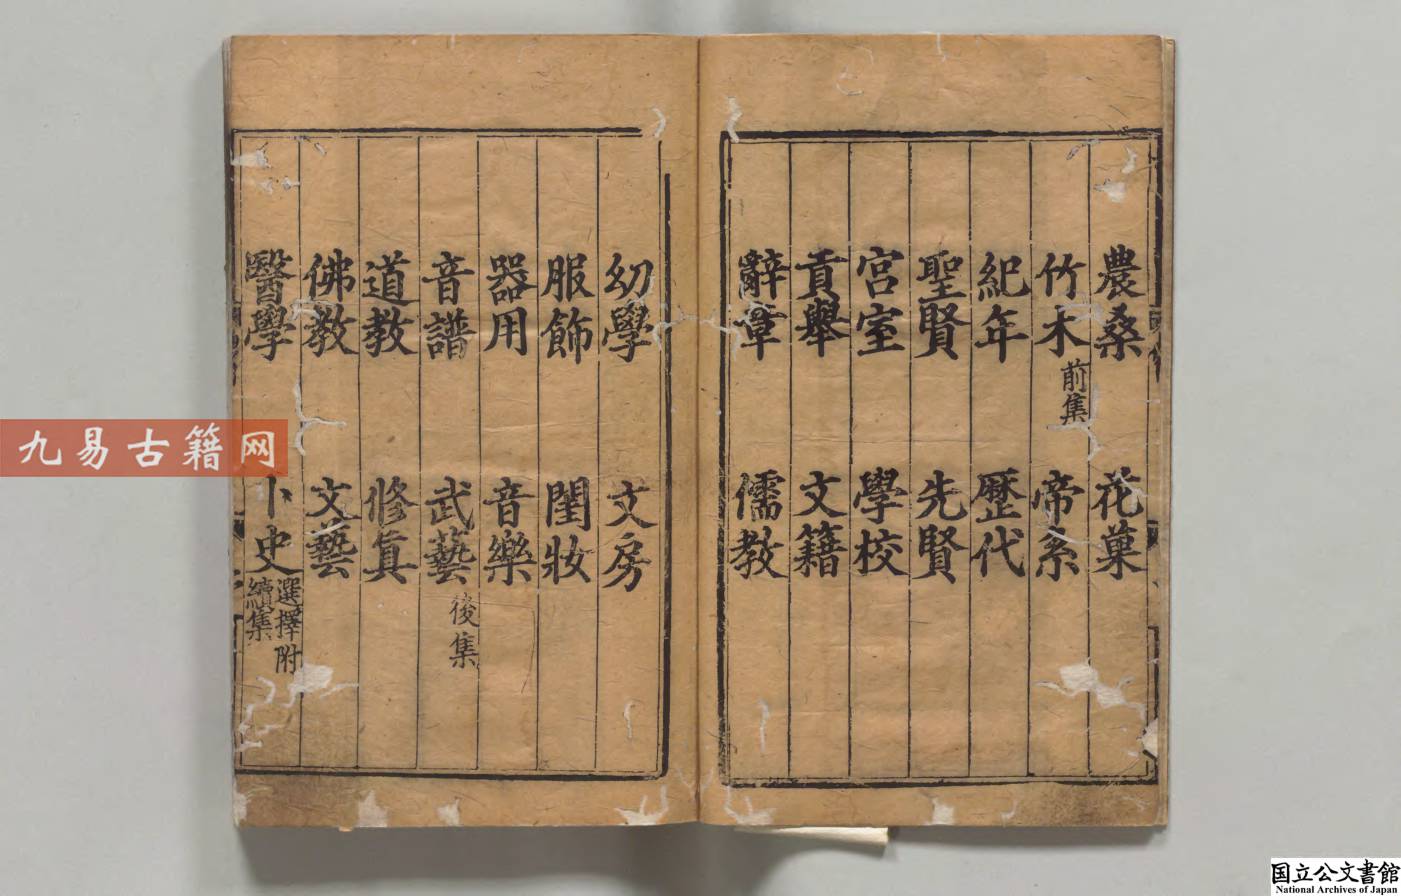 農桑 花菓
竹木前集 帝系
紀年 歷代
聖賢 先賢
宮室 學校
貢舉 文籍
辭章 儒教
幼學 文房
服飾 閨妝
器用 音樂
音譜 武藝後集
道教 修真
佛教 文藝
醫學 卜史選擇附續集
九易古籍网
国立公文書館
National Archives of Japan